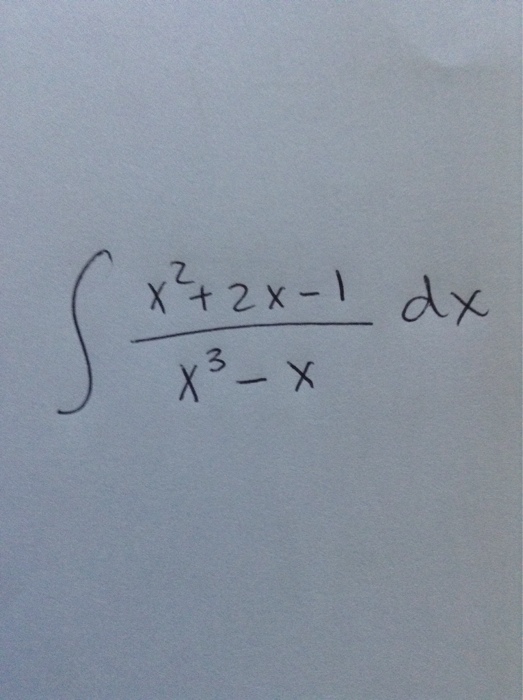 ∫ (x²+2x-1)/(x³-x) dx